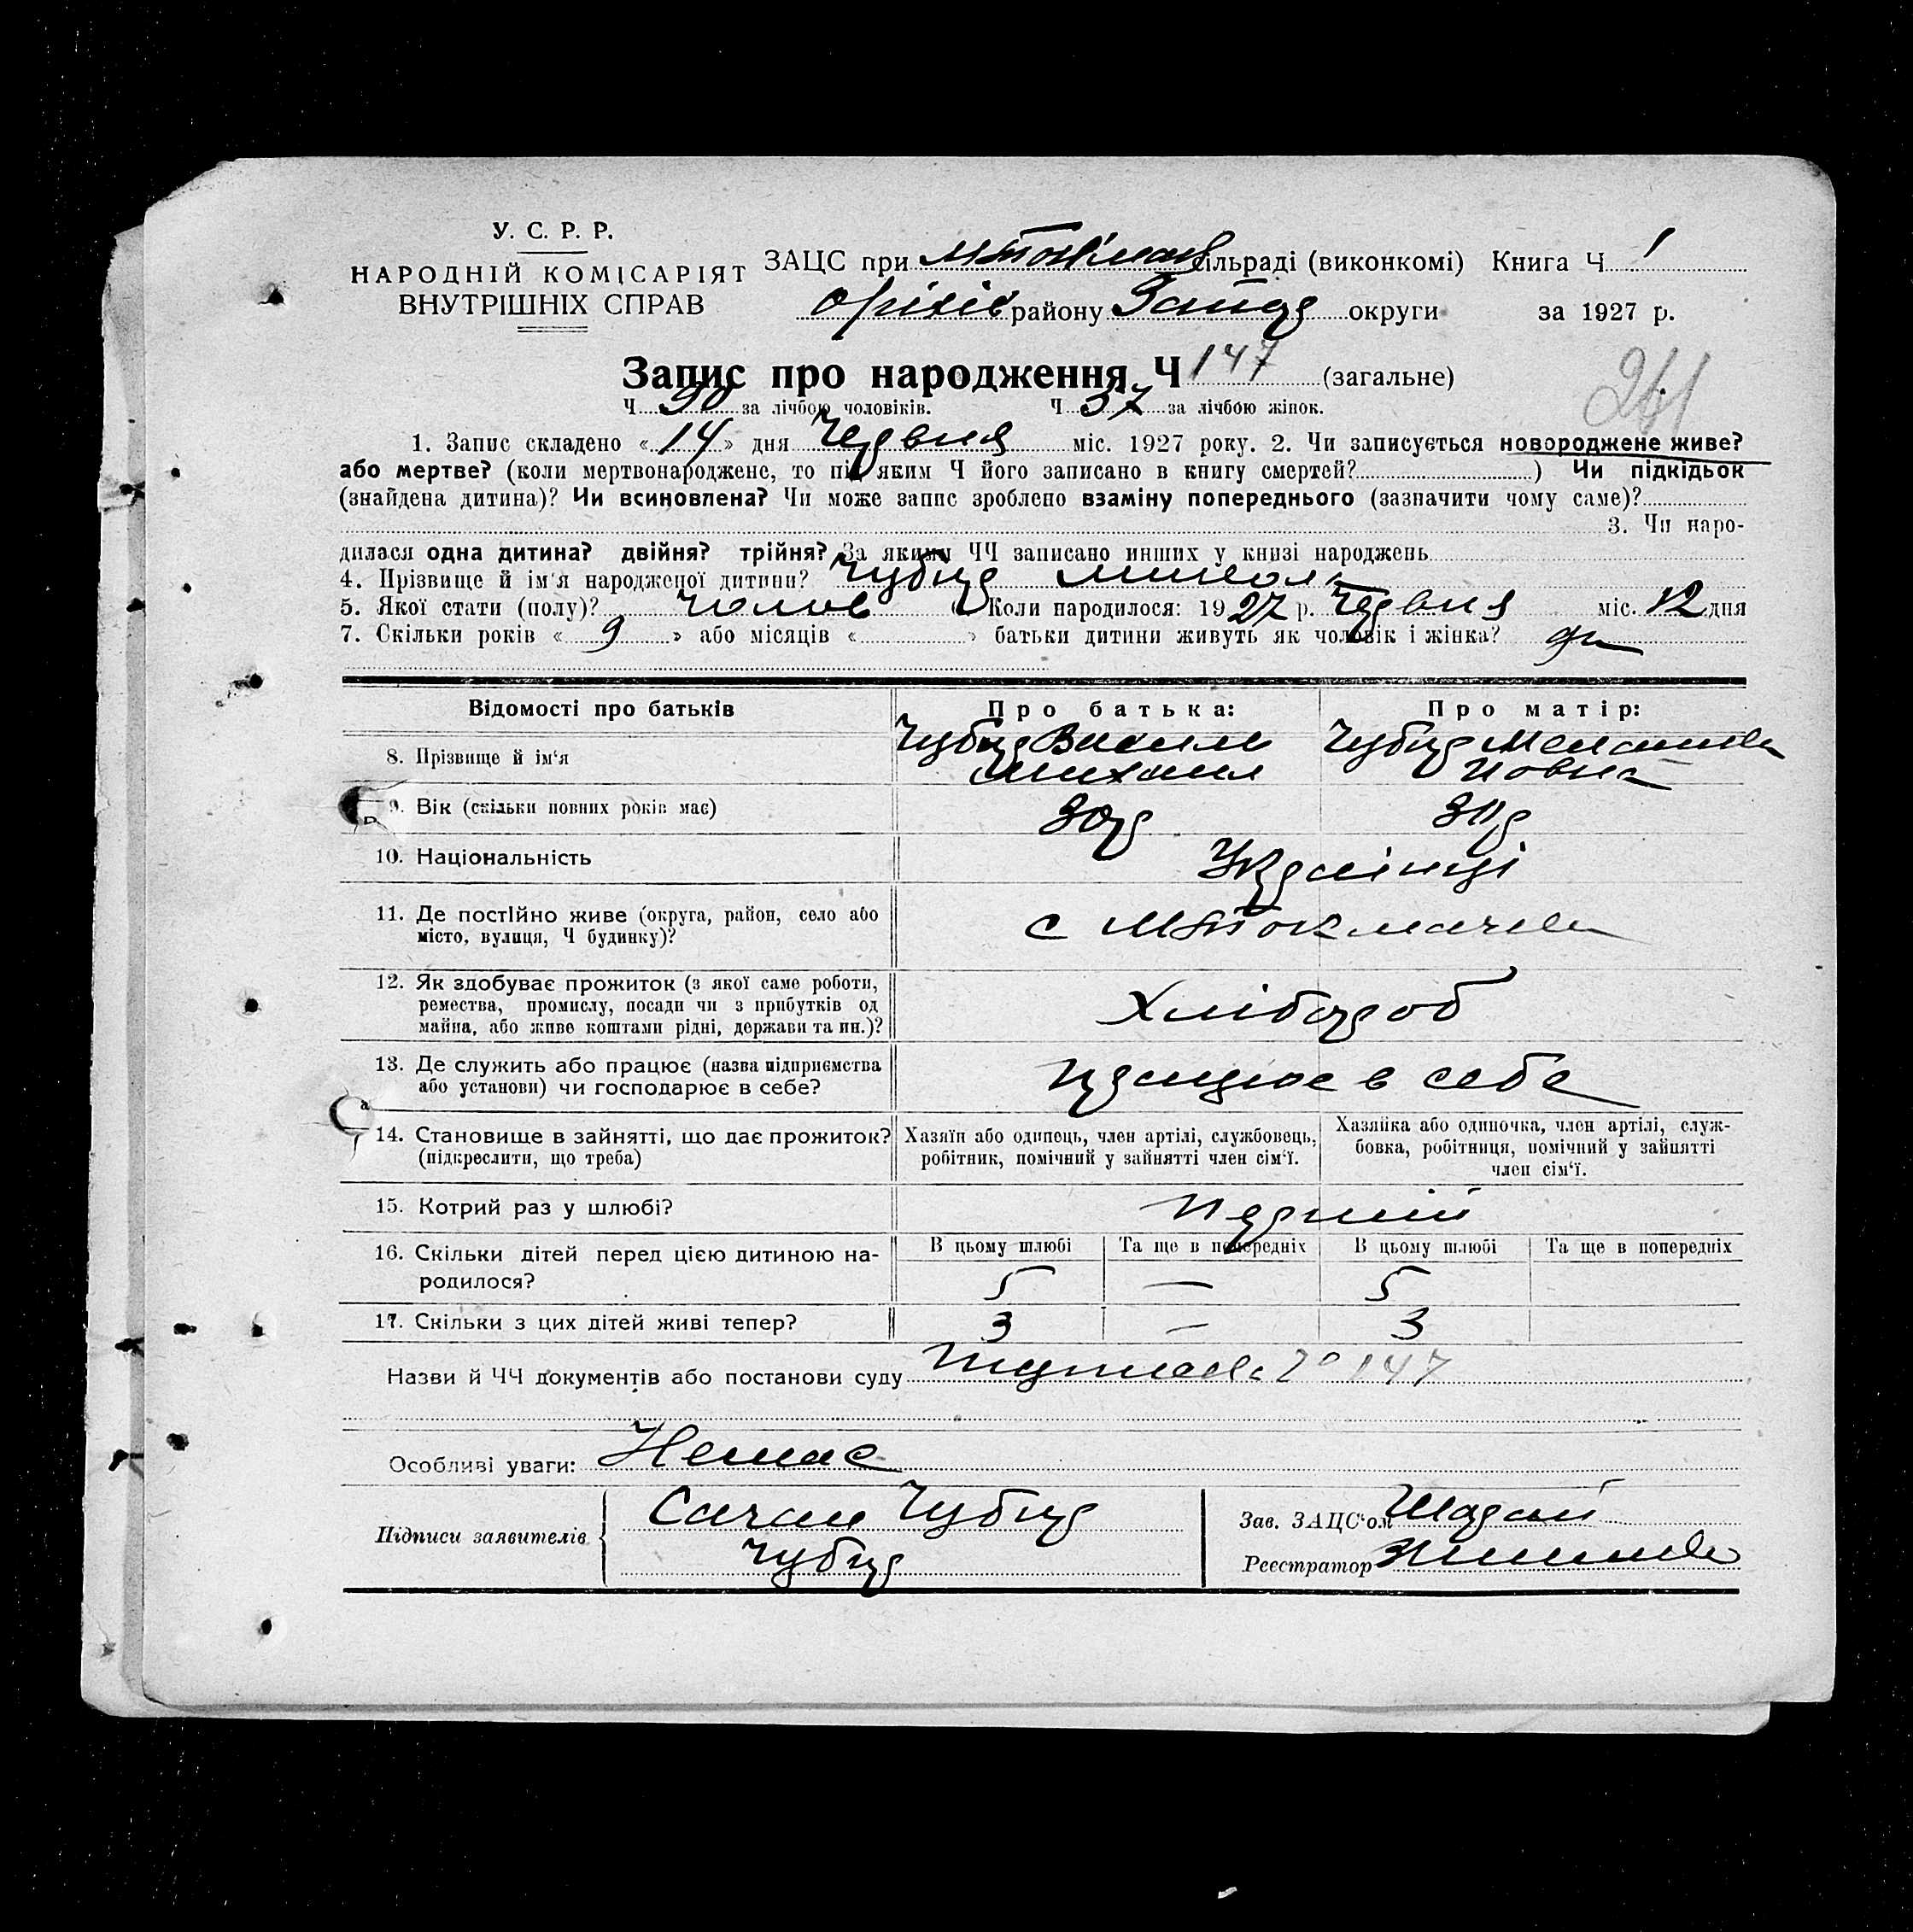 У. С. Р. Р.
НАРОДНІЙ КОМІСАРІЯТ
ВНУТРІШНІХ СПРАВ
ЗАЦС при сільраді (виконкомі) Книга Ч 1
Оріхів району Запор округи за 1927 р.
Запис про народження Ч 147 (загальне)
261
Ч 90 за лічбою чоловіків. Ч 57 за лічбою жінок.
1. Запис складено «14» дня Червня міс. 1927 року. 2. Чи записується новороджене живе?
або мертве? (коли мертвонароджене, то під яким Ч його записано в книгу смертей?) Чи підкідьок
(знайдена дитина)? Чи всиновлена? Чи може запис зроблено взаміну попереднього (зазначити чому саме)?
3. Чи наро-
дилася одна дитина? двійня? трійня? За якими ЧЧ записано инших у книзі народжень
4. Прізвище й ім'я народженої дитини? Чубур Микола
5. Якої стати (полу)? чолов Коли народилося: 1927 р. Червня міс. 12 дня
7. Скільки років « 9 » або місяців « » батьки дитини живуть як чоловік і жінка?
Відомості про батьків Про батька: Про матір:
8. Прізвище й ім'я Чубур Василь Чубур Меланія
Михаил
9. Вік (скільки повних років має) 30р 30р
10. Національність Україінці
11. Де постійно живе (округа, район, село або
місто, вулиця, Ч будинку)? с МТокмачка
12. Як здобуває прожиток (з якої саме роботи,
ремества, промислу, посади чи з прибутків од
майна, або живе коштами рідні, держави та ин.)? Хлібороб
13. Де служить або працює (назва підприємства
або установи) чи господарює в себе? працює в себе
14. Становище в зайнятті, що дає прожиток?
(підкреслити, що треба)
Хазяїн або одинець, член артілі, службовець,
робітник, помічний у зайнятті член сім'ї.
Хазяйка або одиночка, член артілі, служ-
бовка, робітниця, помічний у зайнятті
член сім'ї.
15. Котрий раз у шлюбі? Перший
16. Скільки дітей перед цією дитиною на-
родилося?
В цьому шлюбі Та ще в попередніх В цьому шлюбі Та ще в попередніх
5 — 5
17. Скільки з цих дітей живі тепер? 3 — 3
Назви й ЧЧ документів або постанови суду 147
Особливі уваги: Немає
Підписи заявителів Чубур
Чубур
Зав. ЗАЦС'ом
Реєстратор